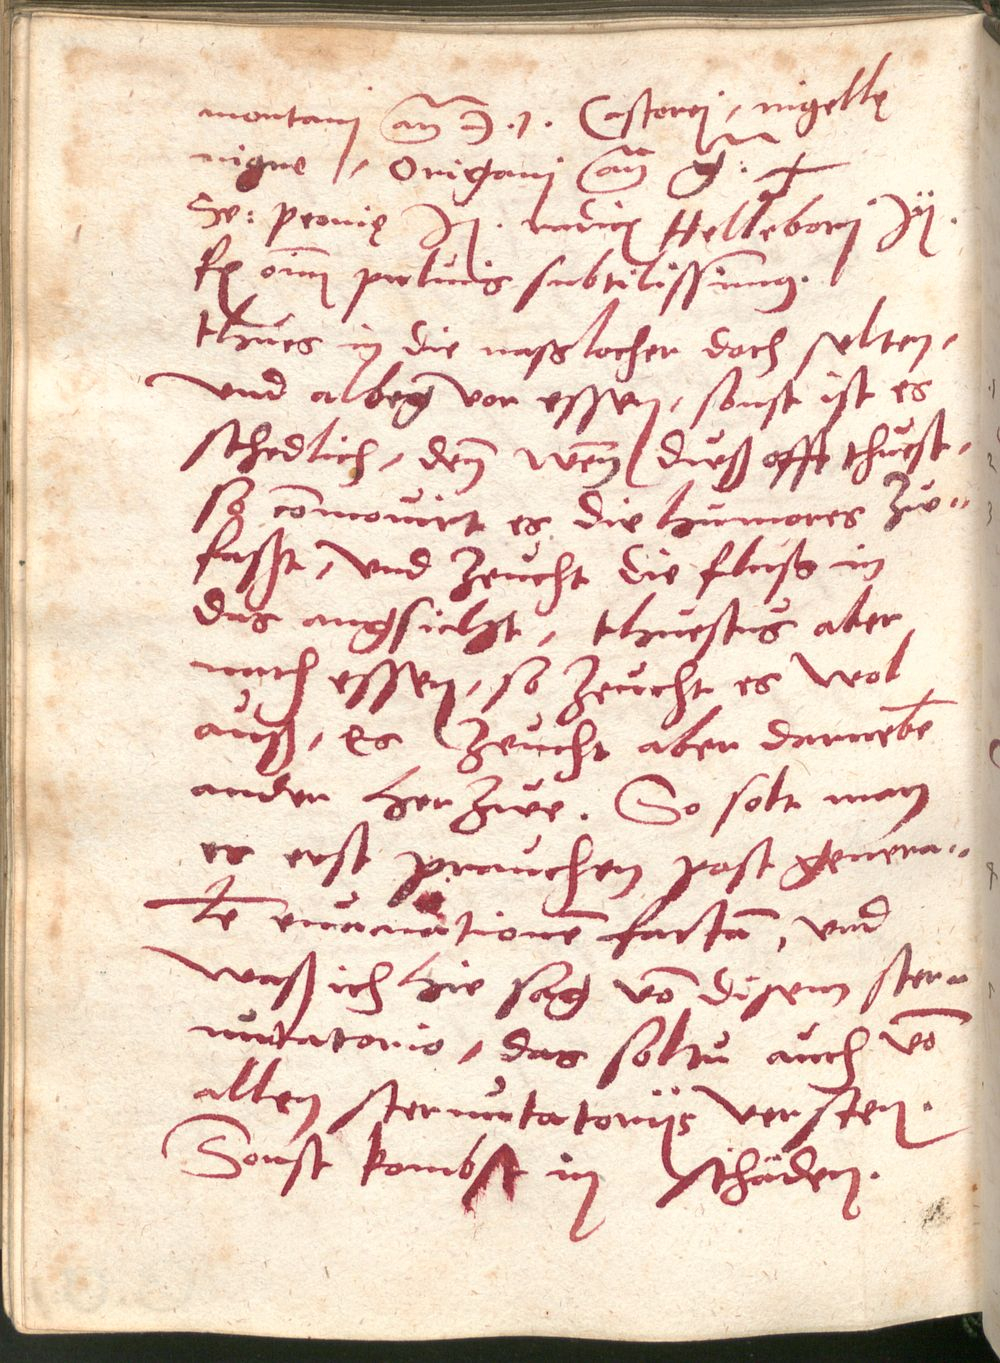 montanj an ℈.1. Castorej, nigellę
nigre, Origanj an g: x
Se: peonię ℈j. radicę Hellebori ℈ij.
fę oim puluis subtilissimus.
thues in die nasslocher doch selten,
vnd albeg vor essen, sonst ist es
schedlich, den wen dues offt thuest,
so comouirt es die humores zue-
fasst, vnd zeucht die fluss in
das angsicht, thuestus aber
nach essen, so zeucht es wol
auß, es zeucht aber darnebē
ander herzue. So solt man
es erst prauchen post genera-
lē euacuationē factā, vnd
waß ich hie sag vō disem ster-
nutatorio, das soltu auch vō
allen sternutatorijs versten.
Sonst kombst in schäden.